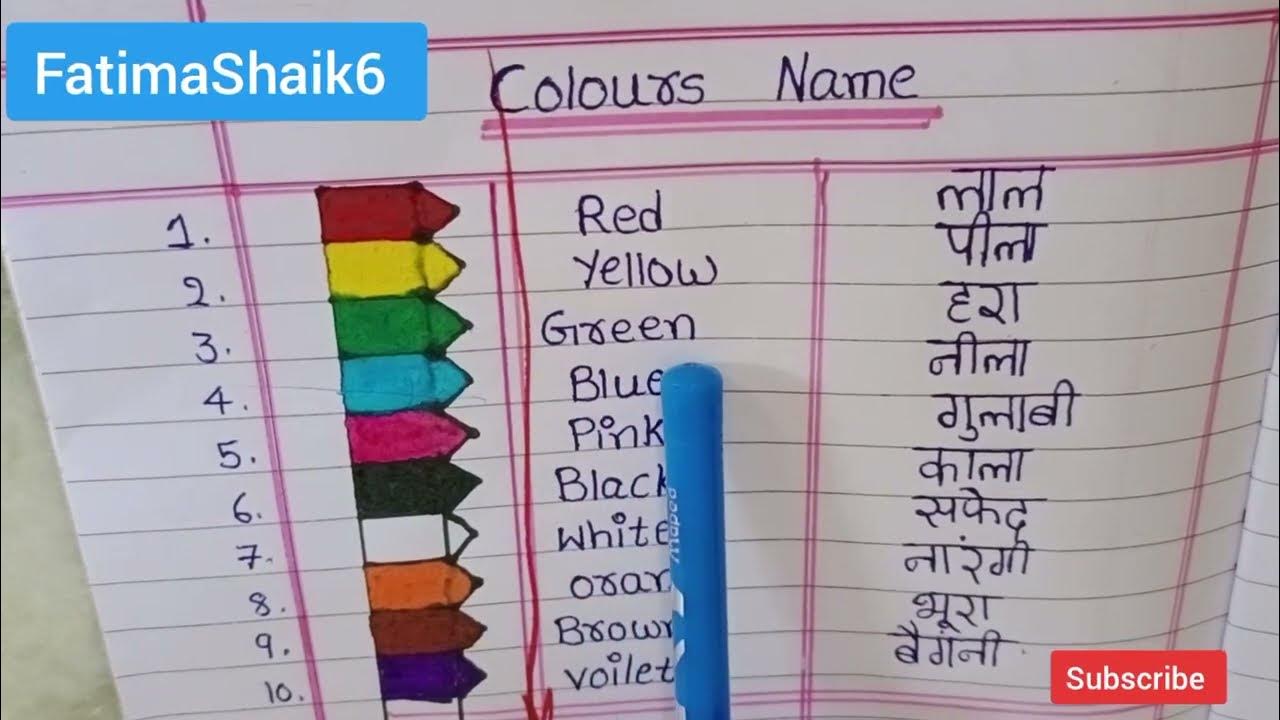 FatimaShaik6
Colours Name
1. Red लाल
2. Yellow पीला
3. Green हरा
4. Blue नीला
5. Pink गुलाबी
6. Black काला
7. White सफेद
8. oran नारंगी
9. Brown भूरा
10. voilet बैगंनी
maped
Subscribe